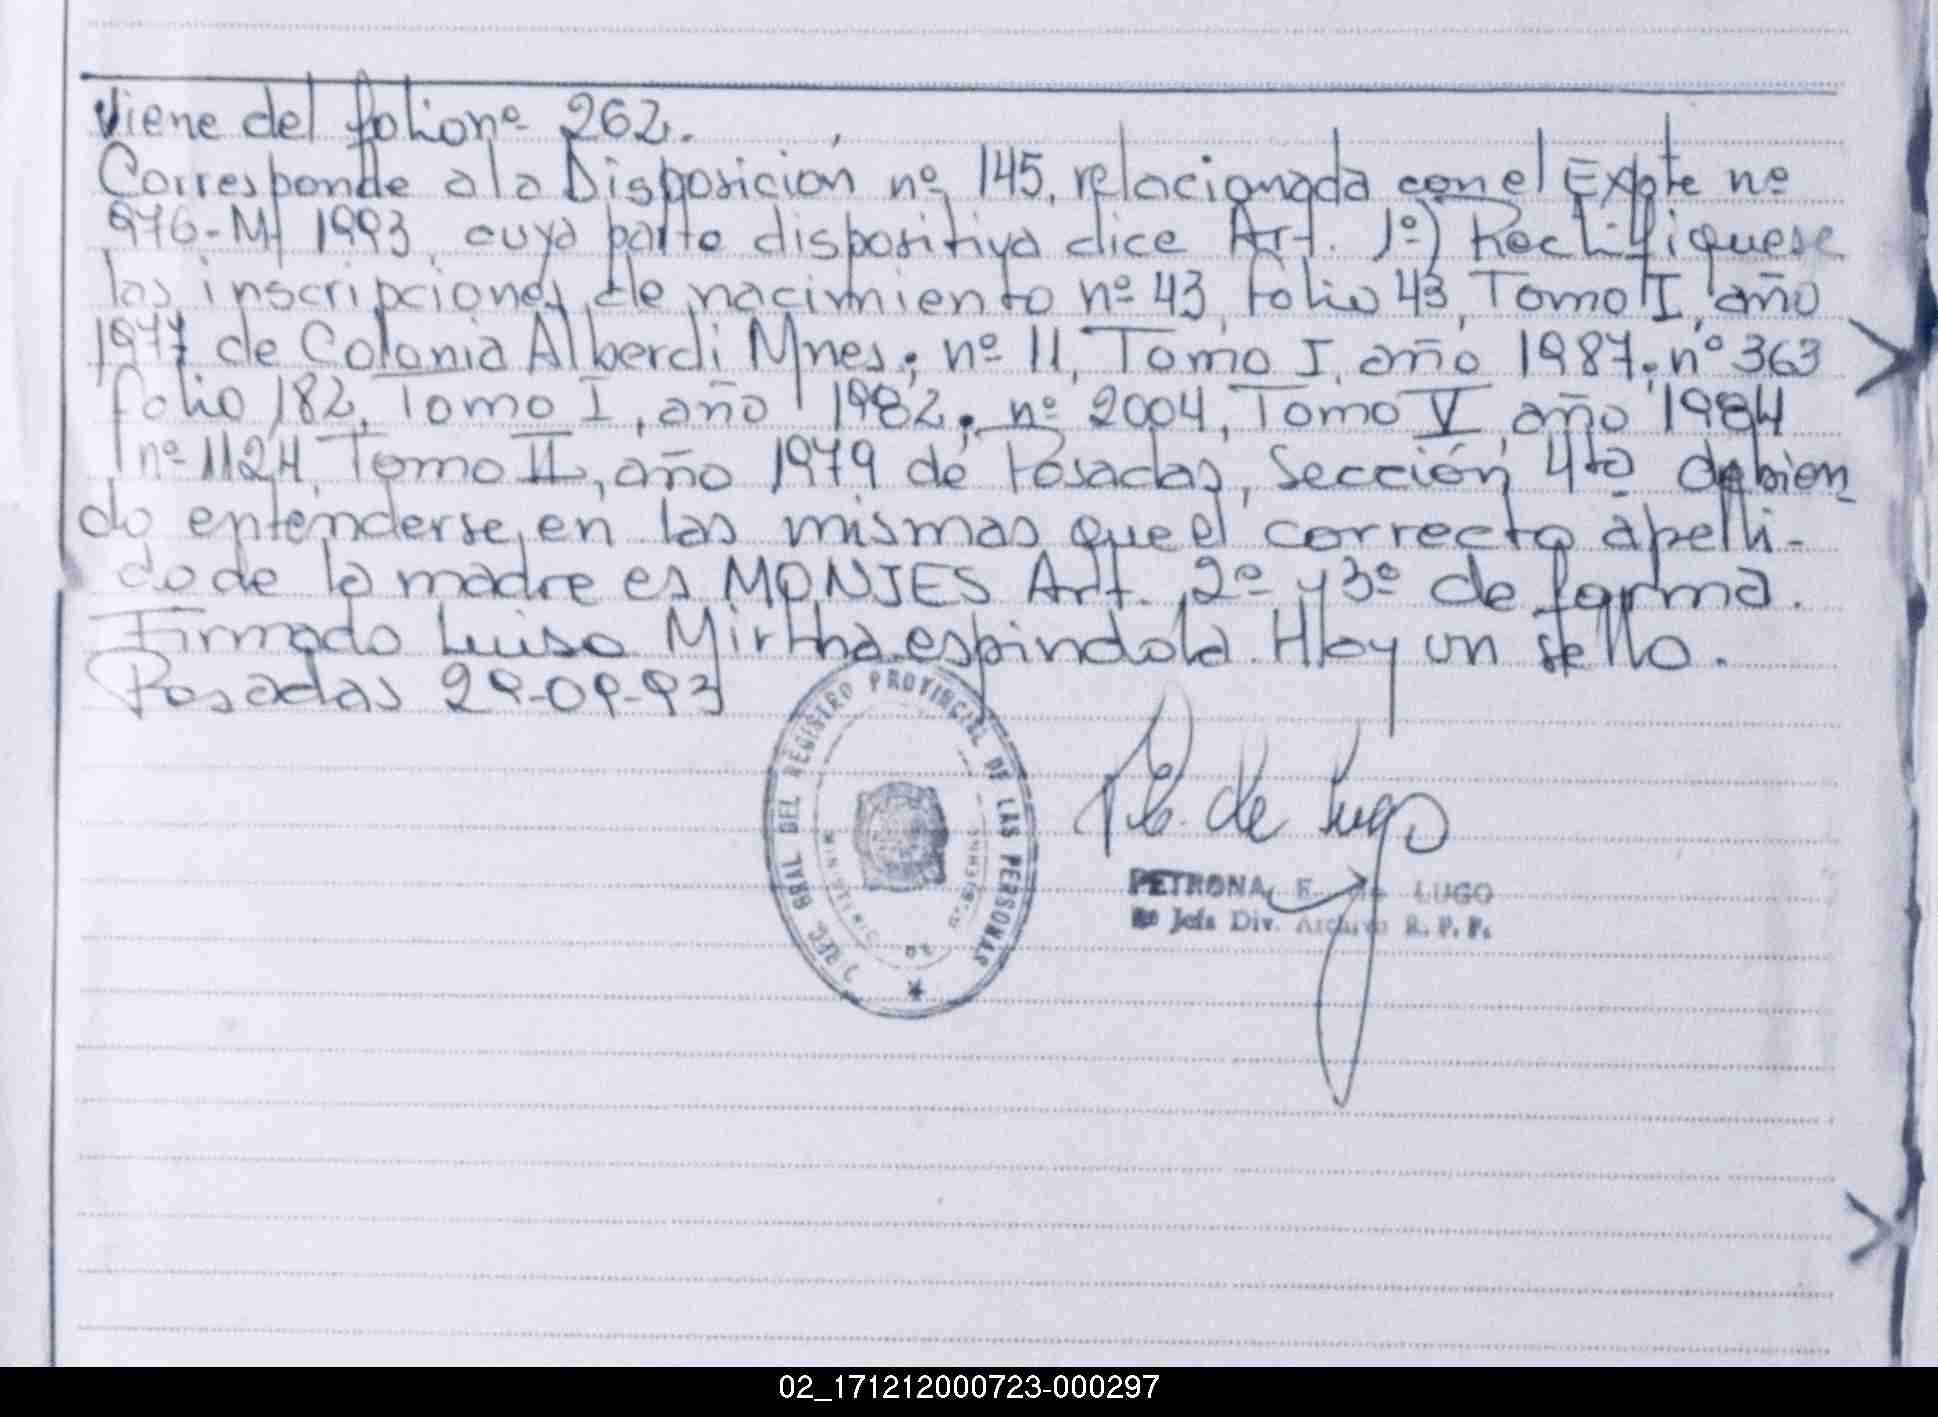 Viene del folio nº 262.
Corresponde a la Disposición nº 145, relacionada con el Expte nº
976-M 1993 cuya parte dispositiva dice Art. 1º) Rectifiquese
las inscripciones de nacimiento nº 43, folio 43, Tomo I, año
1977 de Colonia Alberdi Mnes; nº 11, Tomo I, año 1987; nº 363
folio 182, Tomo I, año 1982; nº 2004, Tomo V, año 1984
nº 1124, Tomo II, año 1979 de Posadas, Sección 4ta debien
do entenderse en las mismas que el correcto apelli-
do de la madre es MONJES Art. 2º y 3º de forma.
Firmado Luisa Mirtha espindola. Hay un sello.
Posadas 29-09-93
DIREC. GRAL DEL REGISTRO PROVINCIAL DE LAS PERSONAS
MINISTERIO DE GOBIERNO
P. E. de Lugo
PETRONA E. de LUGO
Jefa Div. Archivo R. P. P.
02_171212000723-000297